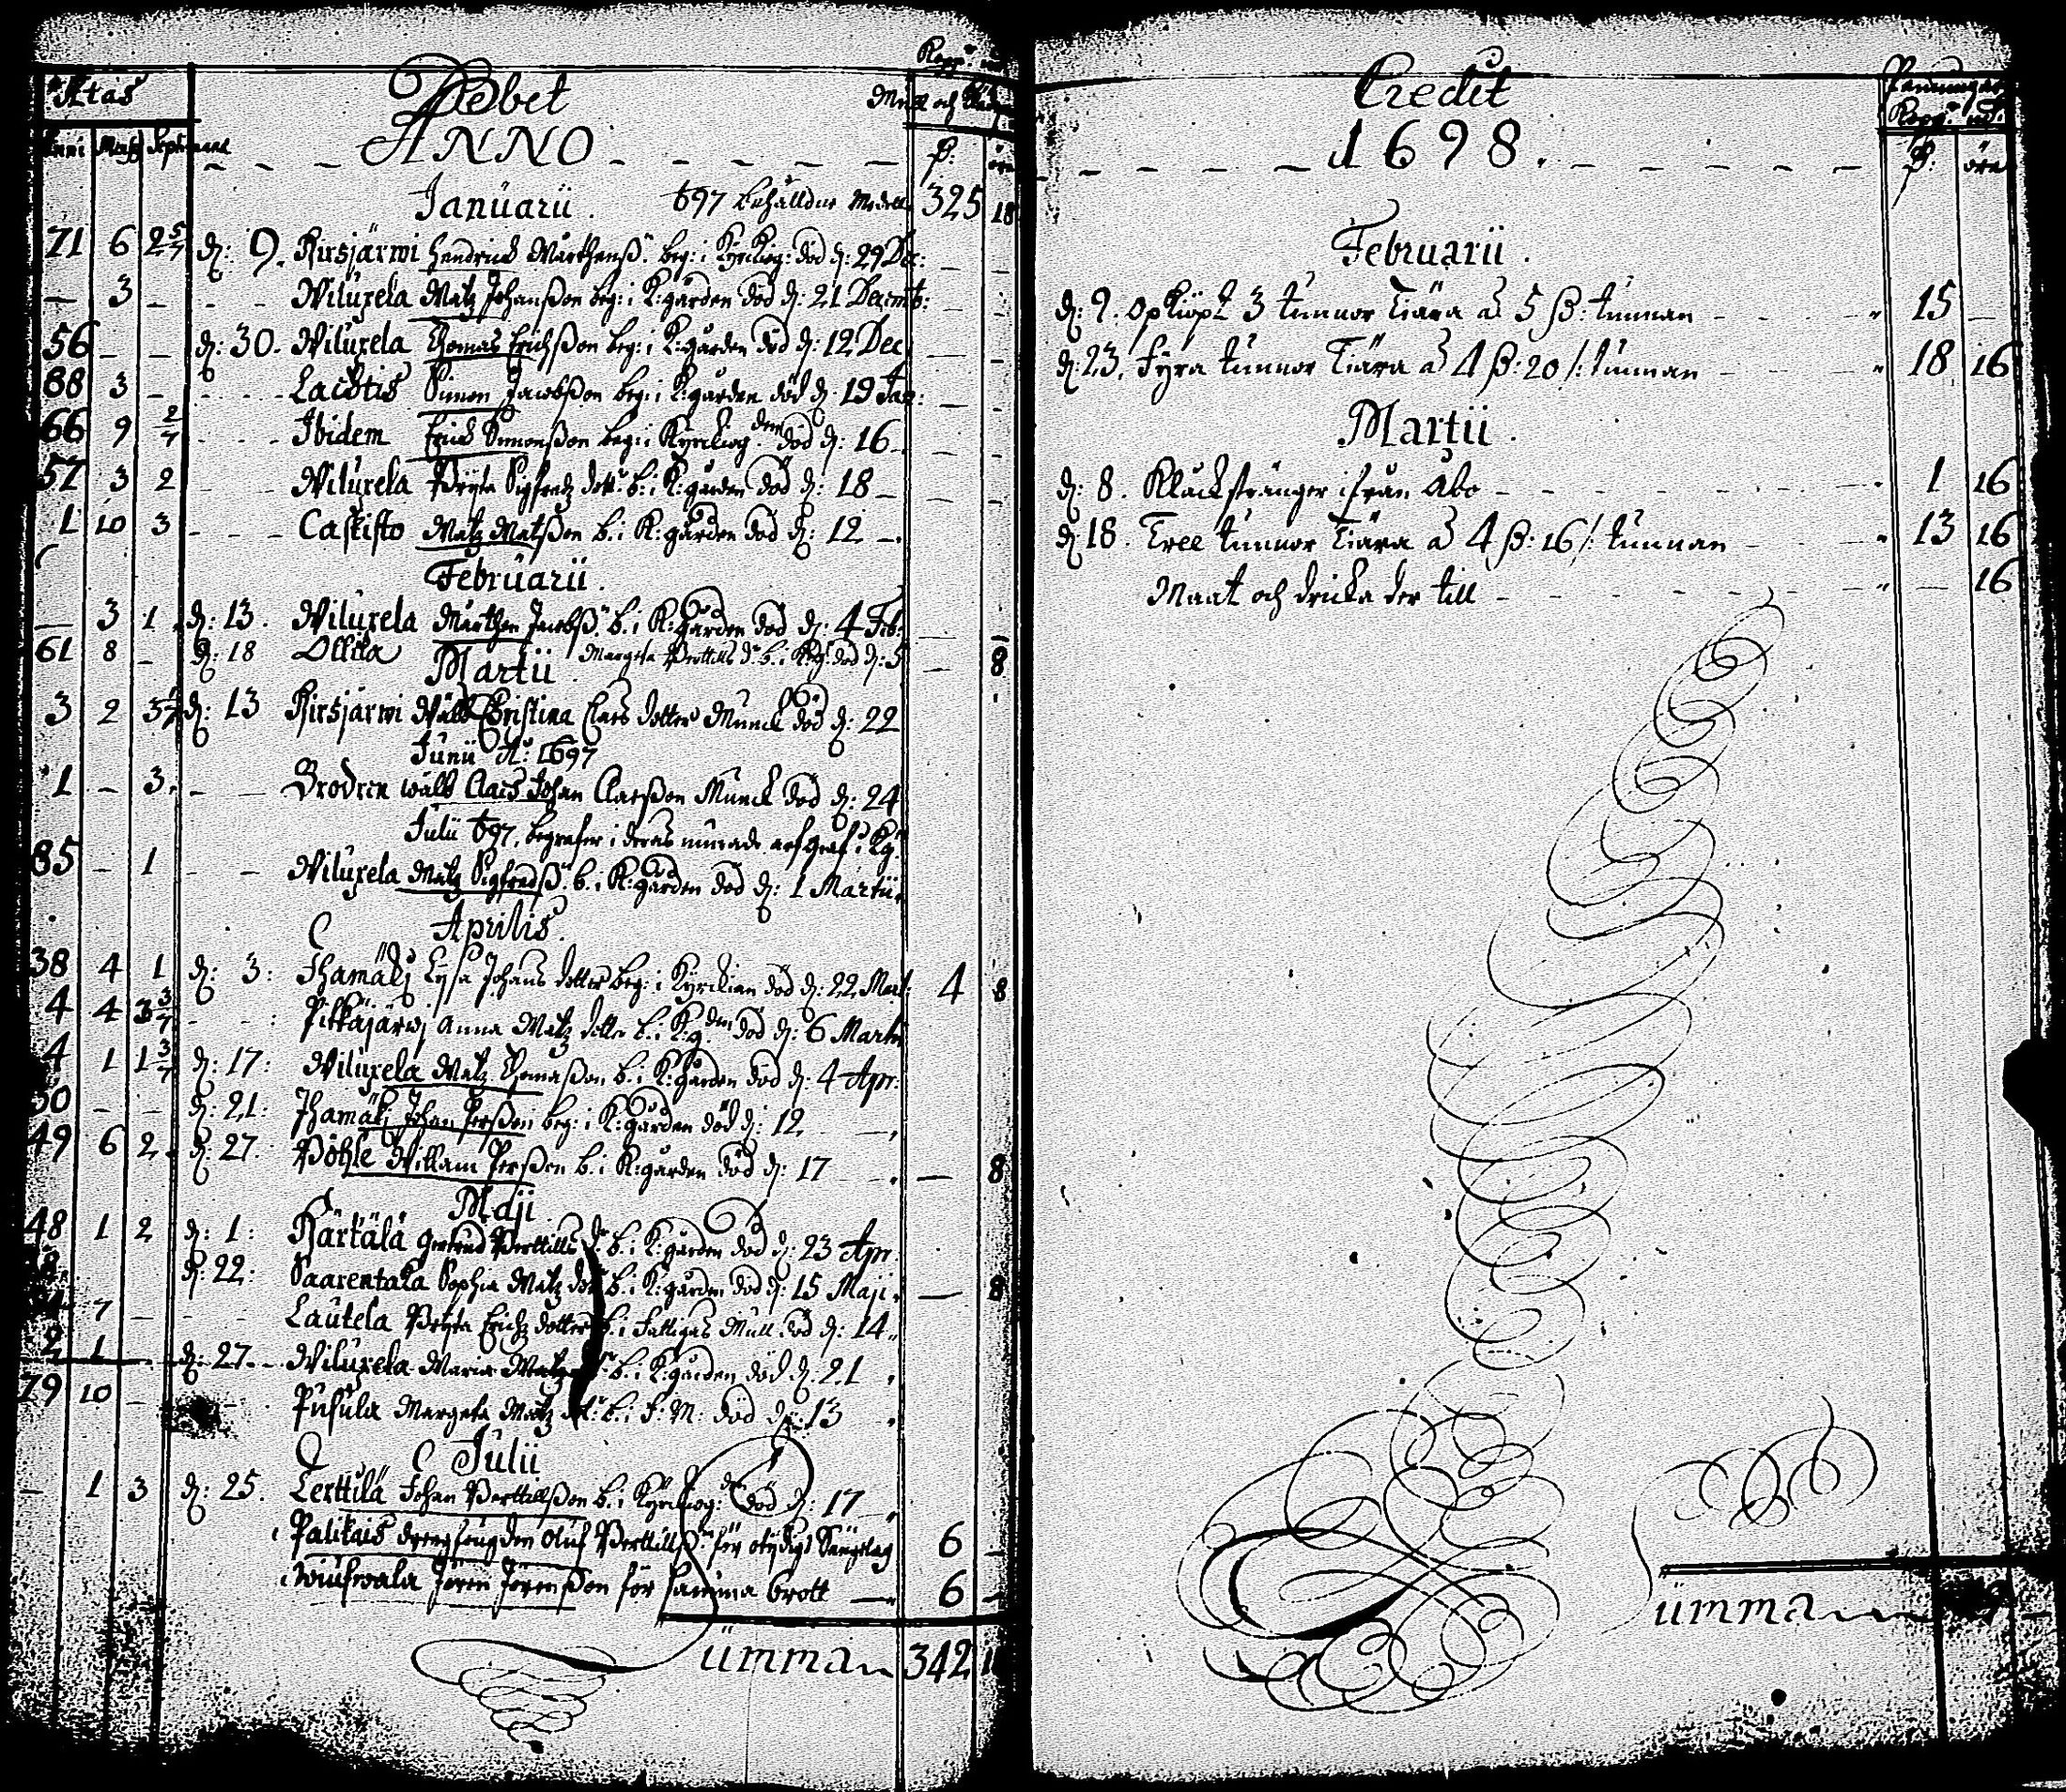 Ætas Debet Mull och
Anni Mens Septimanæ ANNO ß: öre
Januarii. 697 behålldne Medell 325 18
71 6 2 5/7 d: 9. Kirsjärwi Hendrich Mårthenß. beg: i Kyrkiog: död d: 29 De:
— 3 — Wiluxela Matz Johanßon beg: i K:gården död d: 21 Decemb:
56 — — d: 30. Wiluxela Thomas Erichßon beg: i K:gården död d: 12 Dec
88 3 — Lacktis Simon Jacobßon beg: i K:gården död d: 19 Jan:
66 9 2/7 Ibidem Erich Simonßon beg: i Kyrckiog den död d: 16
57 3 2 Wiluxela Bryta Sigfredz dott: b: i K:gården död d: 18
1 10 3 Caskisto Matz Matßon b: i K:gården död d: 12
Februarii.
— 3 1 d: 13. Wiluxela Mårthen Jacobß. b: i K:gården död d: 4 Feb:
61 8 — d: 18 Ollila Margeta Berttills d: b: i K:g: död d: 5 — 8
Martii
3 2 3 1/7 d: 13 Kirsjärwi Wälb Christina Claes dotter Munck död d: 22
Junii A: 1697
1 — 3. Brodren wälb Claes Johan Claeßon Munck död d: 24
Julii 697, begrafne i deras murade arfgraf i Kg:
85 — 1 Wiluxela Matz Sigfredß. b: i K:gården död d: 1 Martii.
Aprilis.
38 4 1 d: 3: Ihamäki Lysa Johans dotter beg: i Kyrckian död d: 22 Mart: 4 8
4 4 3 3/7 Pitkäjärwj Anna Matz dotter b: i K:g den död d: 6 Martii
4 1 1 3/7 d: 17: Wiluxela Matz Thomaßon b: i K:gården död d: 4 Apr:
— — d: 21: Ihamäki Johan Perßon beg: i K:gården död d: 12
49 6 2. d: 27: Pöhle Willam Perßon b: i K:gården död d: 17 — 8
Maji
48 1 2 d: 1: Härkälä Gertrud Berttills d: b: i K:gården död d: 23 Apr:
d: 22: Saarentaka Sophia Matz dott b: i K:gården död d: 15 Maji. — 8
7 — Lautela Bryta Erichz dotter b: i Fattigas Mull död d: 14
2 1 d: 27 Wiluxela Maria Matz b: i K:gården död d: 21
79 10 — Pusula Margeta Matz dott: b: i F: M: död d: 13
Julii
— 1 3 d: 25. Lerttilä Johan Berttillßon b: i Kyrckiog: den död d: 17
Palikais Oluf Berttillß. för otydigt Sängelag 6
Jören Jörenßon för samma brott — 6
Summa 342
Credit Penningar
1698. ß: öre
Februarii.
d: 9. Opkiöpt 3 tunnor Tiära a 5 ß: tunnan 15 —
d: 23. Fyra tunnor Tiära a 4 ß: 20 /: tunnan 18 16
Martii.
d: 8. Klåckstränger ifrån Åbo 1 16
d: 18. Tree tunnor Tiära a 4 ß: 16 /: tunnan 13 16
Maat och dricka der till — 16
Summa